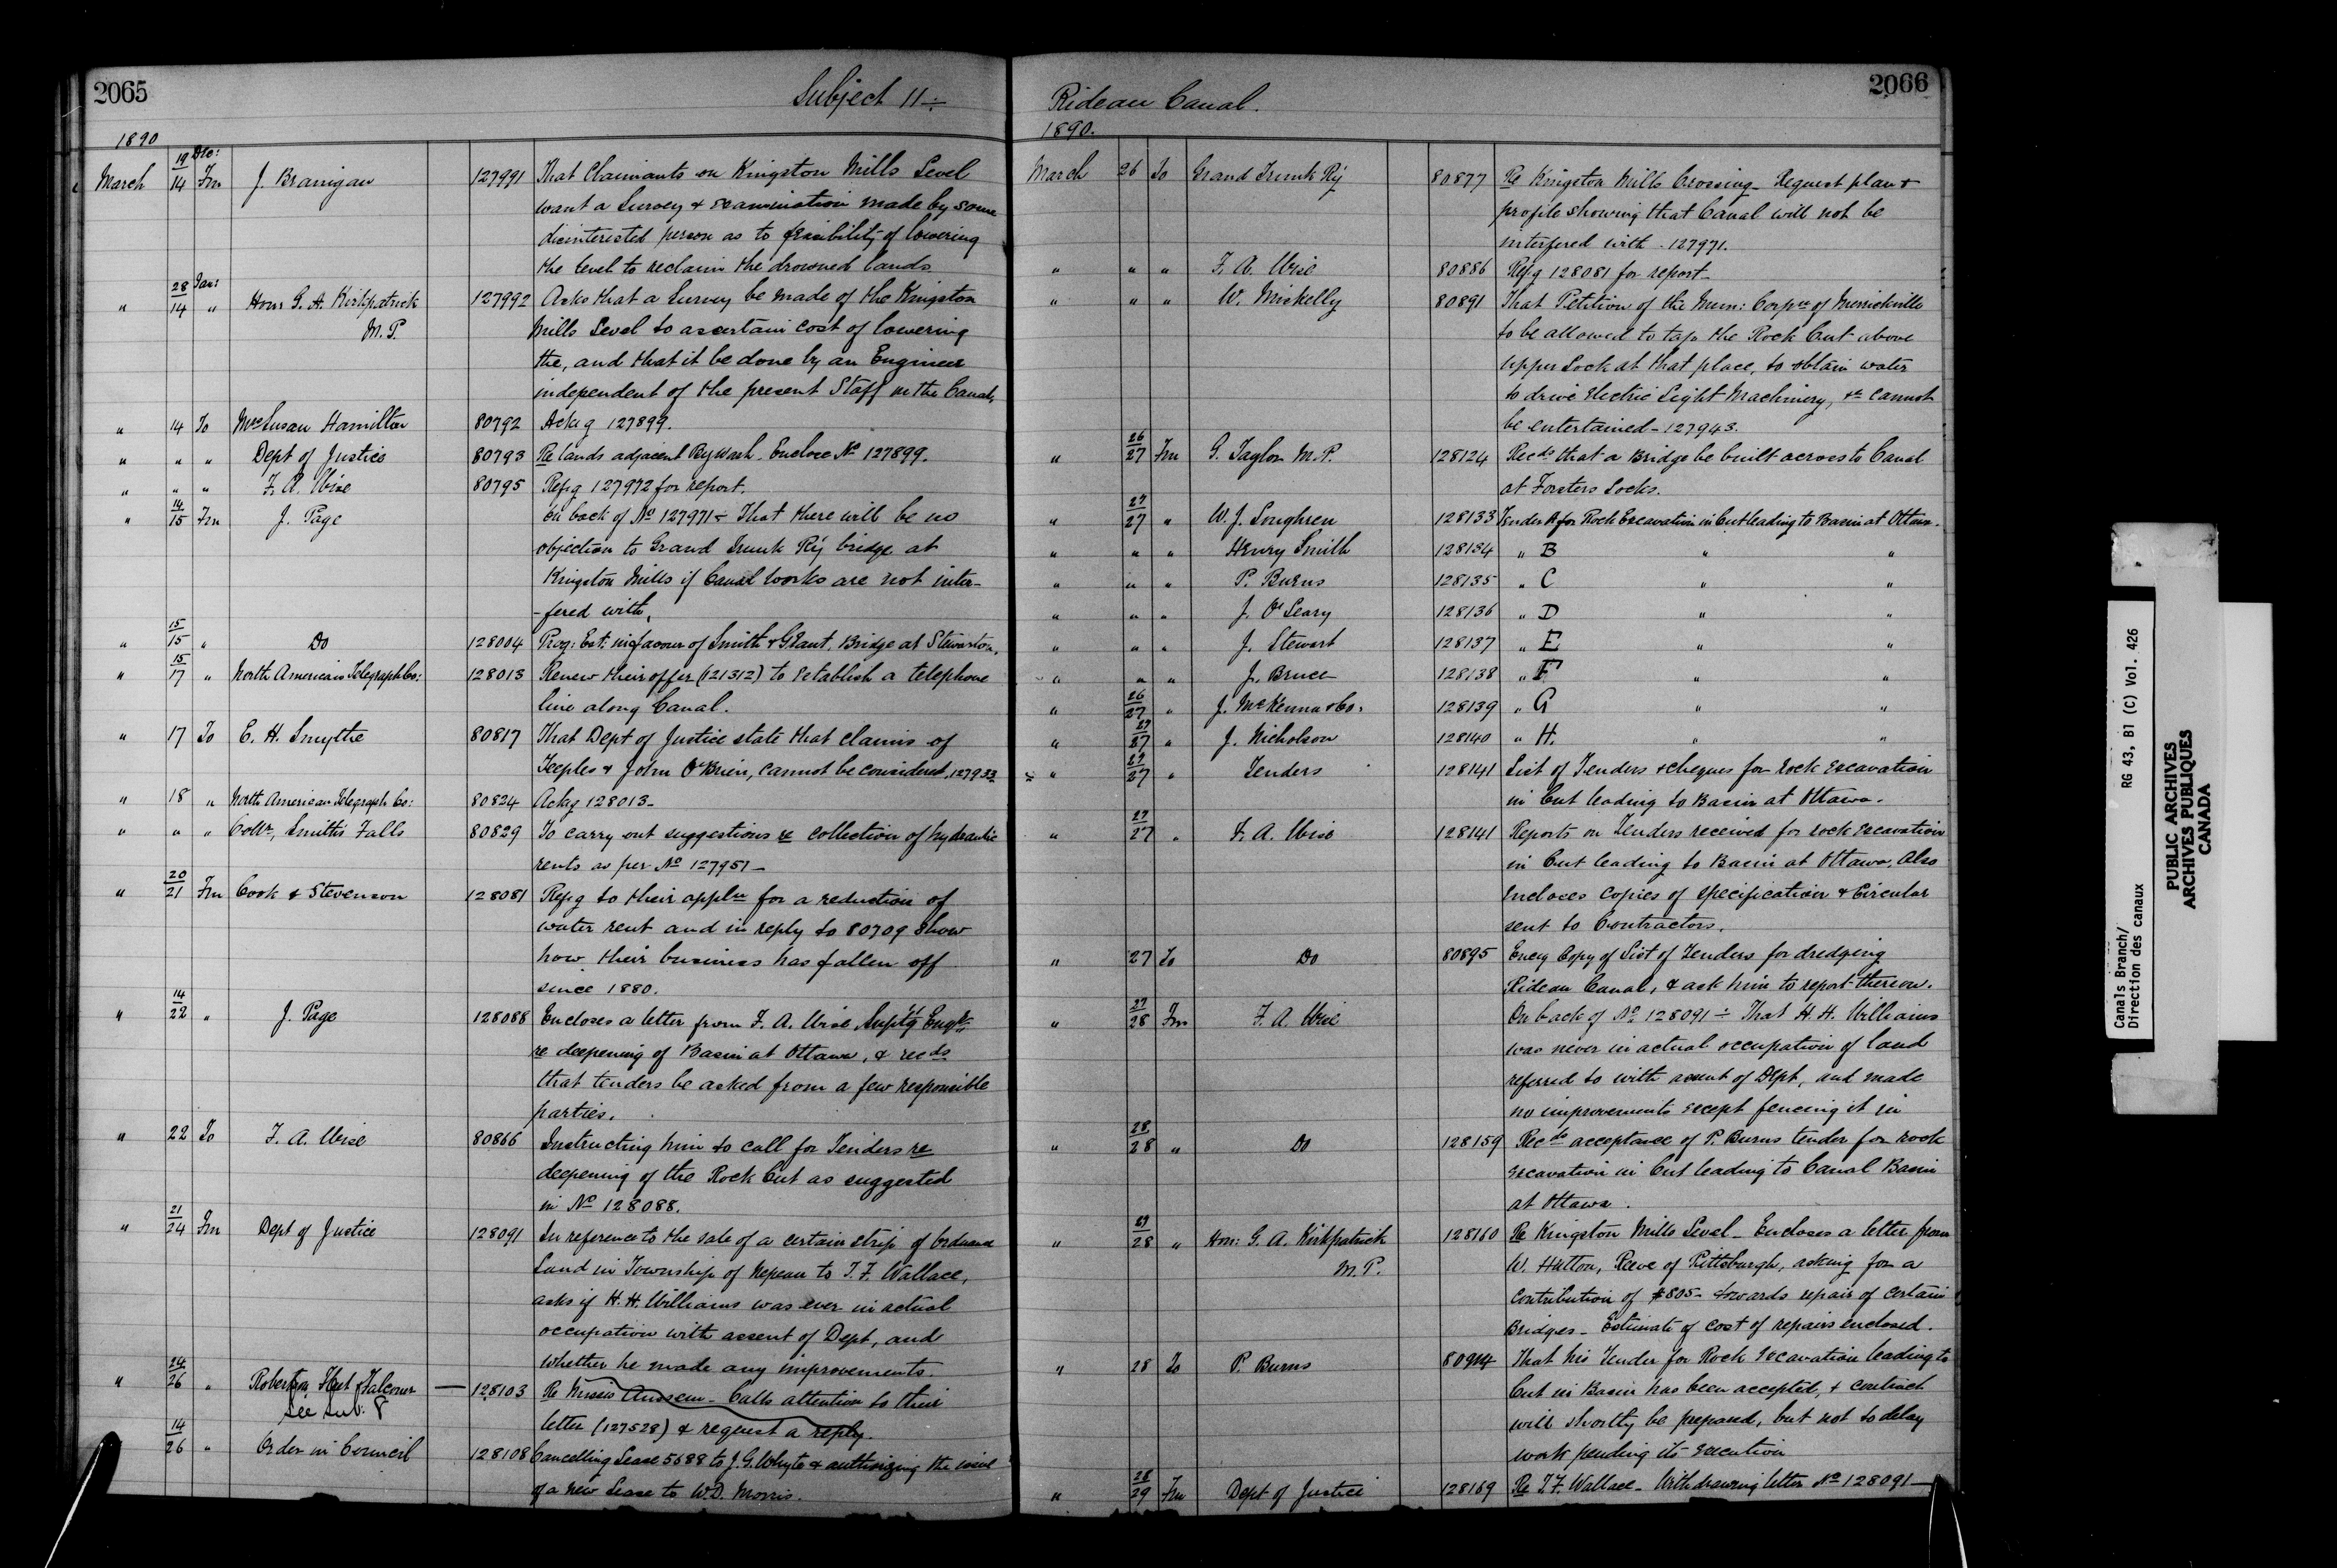 2065
Subject 11 ÷
1890
March 19 Dec: / 14 Fm J. Branigan 127991 That Claimants on Kingston Mills Level
want a Survey & examination made by some
disinterested person as to feasibility of lowering
the level to reclaim the drowned lands
" 28 Jan: / 14 " Hon: G. A. Kirkpatrick 127992 Asks that a Survey be made of the Kingston
M.P. Mills Level to ascertain cost of lowering
the, and that it be done by an Engineer
independent of the present Staff on the Canal,
" 14 To Mrs Susan Hamilton 80792 Ackg 127899.
" " " Dept of Justice 80793 Re lands adjacent Bywash. Enclose No 127899.
" " " F. A. Wise 80795 Refg 127992 for report.
" 14/15 Fm J. Page On back of No 127971 ÷ That there will be no
objection to Grand Trunk Ry bridge at
Kingston Mills if Canal works are not inter-
-fered with,
" 15/15 " Do 128004 Prog: Est: in favour of Smith & Grant. Bridge at Stewarton,
" 15/17 " North American Telegraph Co: 128013 Renew their offer (121312) to establish a telephone
line along Canal.
" 17 To C. H. Smythe 80817 That Dept of Justice state that claims of
Teeples & John O'Brien, cannot be considered, 127933
" 18 " North American Telegraph Co: 80824 Ackg 128013-
" " " Collr, Smiths Falls 80829 To carry out suggestions re collection of hydraulic
rents as per No 127951-
" 20/21 Fm Cook & Stevenson 128081 Refg to their appln for a reduction of
water rent and in reply to 80709 show
how their business has fallen off
since 1880.
" 14/22 " J. Page 128088 Encloses a letter from F. A. Wise Suptg Engr,
re deepening of Basin at Ottawa, & recds
that tenders be asked from a few responsible
parties.
" 22 To F. A. Wise 80866 Instructing him to call for Tenders re
deepening of the Rock Cut as suggested
in No 128088.
" 21/24 Fm Dept of Justice 128091 In reference to the sale of a certain strip of Ordnance
Land in Township of Nepean to T. F. Wallace,
asks if H. H. Williams was ever in actual
occupation with assent of Dept, and
whether he made any improvements.
" 24/26 " Robertson Falconer — 128103 Re Messrs - Calls attention to their
See Sub: 8 letter (127528) & request a reply.
" 14/26 " Order in Council 128108 Cancelling Lease 5688 to J. G. Whyte & authorizing the issue
of a new Lease to W.D. Morris.
2066
Rideau Canal.
1890.
March 26 To Grand Trunk Ry 80877 Re Kingston Mills Crossing - Request plan &
profile showing that Canal will not be
interfered with - 127971.
" " " F. A. Wise 80886 Refg 128081 for report-
" " " W. Mickelly 80891 That Petition of the Mun: Corpn of Merrickville
to be allowed to tap the Rock Cut above
upper Lock at that place, to obtain water
to drive Electric Light Machinery, &c cannot
be entertained - 127943.
" 26/27 Fm G. Taylor M.P. 128124 Recds that a Bridge be built across to Canal
at Fosters Locks.
" 27/27 " W. J. Loughren 128133 Tender A for Rock Excavation in Cut leading to Basin at Ottawa.
" " " Henry Smith 128134 " B " "
" " " P. Burns 128135 " C " "
" " " J. O'Leary 128136 " D " "
" " " J. Stewart 128137 " E " "
" " " J. Bruce 128138 " F " "
" 26/27 " J. McKenna & Co: 128139 " G " "
" 27/27 " J. Nicholson 128140 " H. " "
" 27/27 " Tenders 128141 List of Tenders & cheques for rock excavation
in Cut leading to Basin at Ottawa.
" 27/27 " F. A. Wise 128141 Reports on Tenders received for rock excavation
in Cut leading to Basin at Ottawa, Also
Incloses copies of specification & Circular
sent to Contractors.
" 27 To Do 80895 Encg Copy of List of Tenders for dredging
Rideau Canal, & ask him to report thereon.
" 27/28 Fm F. A. Wise On back of No 128091 ÷ That H. H. Williams
was never in actual occupation of land
referred to with assent of Dept, and made
no improvements except fencing it in
" 28/28 " Do 128159 Recds acceptance of P. Burns tender for rock
excavation in Cut leading to Canal Basin
at Ottawa.
" 27/28 " Hon: G. A. Kirkpatrick 128160 Re Kingston Mills Level - Encloses a letter from
M.P. W. Hutton, Reeve of Pittsburgh, asking for a
contribution of $805- towards repair of certain
Bridges - Estimate of cost of repairs enclosed.
" 28 To P. Burns 80914 That his Tender for Rock Excavation leading to
Cut in Basin has been accepted, & contract
will shortly be prepared, but not to delay
work pending its execution
" 28/29 Fm Dept of Justice 128169 Re T. F. Wallace - Withdrawing letter No 128091 —
Canals Branch/
Direction des canaux
RG 43, B1 (C) Vol. 426
PUBLIC ARCHIVES
ARCHIVES PUBLIQUES
CANADA